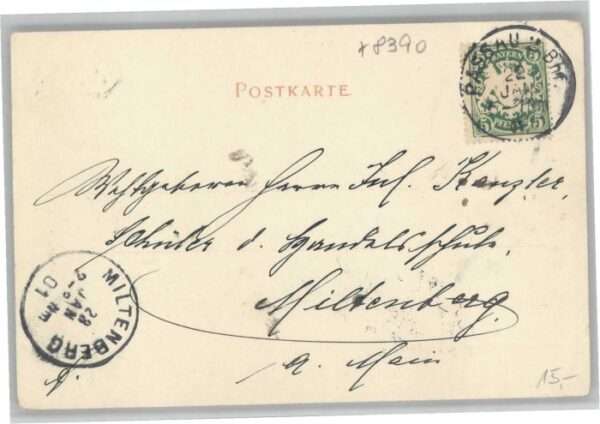 +8390
POSTKARTE
PASSAU II BHF.
22
JAN
BAYERN
5
5
Wohlgeboren Herrn Jul. Kenzler,
Schüler d. Handelsschule,
Miltenberg
a. Main
MILTENBERG
23
JAN
01
15,-